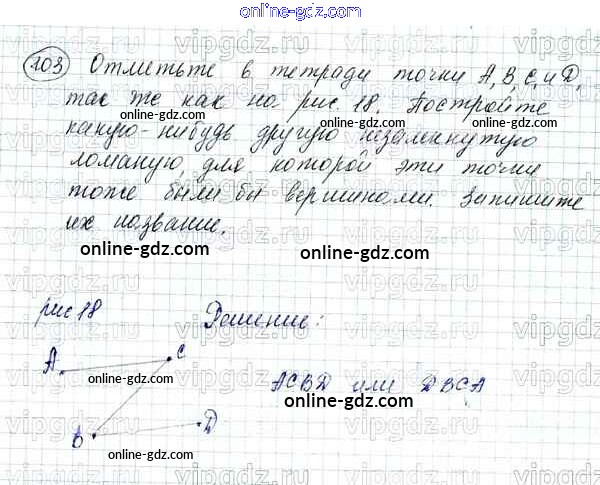 online-gdz.com
103 Отметьте в тетради точки A, B, C, и D,
так же как на рис. 18. Постройте
какую-нибудь другую незамкнутую
ломаную, для которой эти точки
тоже были бы вершинами. Запишите
их название.
online-gdz.com
online-gdz.com
online-gdz.com
рис 18 Решение:
A C
online-gdz.com
ACBD или DBCA
online-gdz.com
B D
online-gdz.com
vipgdz.ru